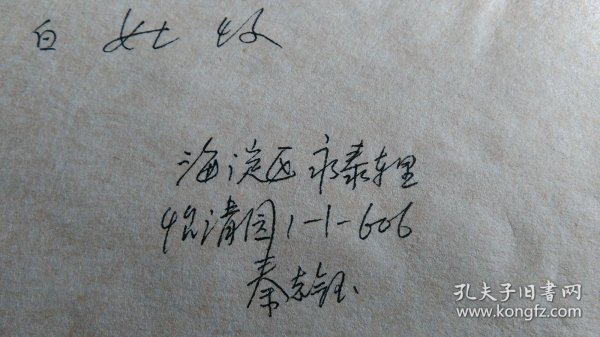 白 女士 收
海淀区永泰东里
怡清园1-1-606
秦志钰
孔夫子旧书网
www.kongfz.com